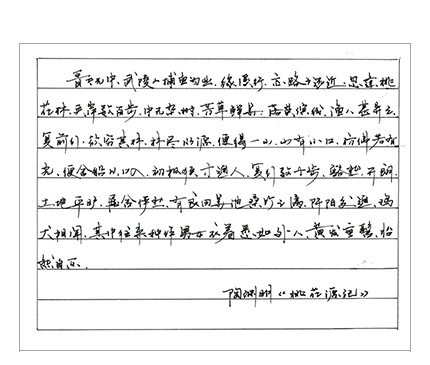 晋太元中，武陵人捕鱼为业，缘溪行，忘路之远近，忽逢桃
花林，夹岸数百步，中无杂树，芳草鲜美，落英缤纷，渔人甚异之，
复前行，欲穷其林，林尽水源，便得一山，山有小口，仿佛若有
光，便舍船从口入，初极狭，才通人，复行数十步，豁然开朗，
土地平旷，屋舍俨然，有良田美池桑竹之属，阡陌交通，鸡
犬相闻，其中往来种作男女衣着悉如外人，黄发垂髫，怡
然自乐。
陶渊明《桃花源记》